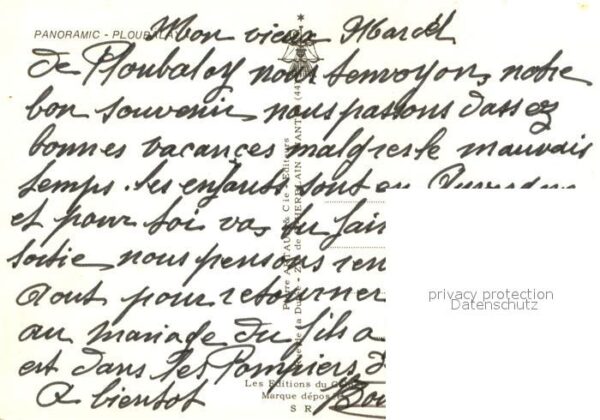 PANORAMIC - PLOUBALAY
Mon vieux Marcel
de Ploubalay nous t'envoyons notre
bon souvenir nous passons d'assez
bonnes vacances malgres le mauvais
temps. les enfants sont en
et pour toi vas tu fair
sortie nous pensons ren
Aout pour retourner
au mariage du fils a
est dans les Pompiers d
A bientot
Les Editions du
Marque déposée
S R
Pierre ARTAUD & Cie - Editeurs
Rue de la Dutée - Z.I. de ST-HERBLAIN NANTES (44)
privacy protection
Datenschutz